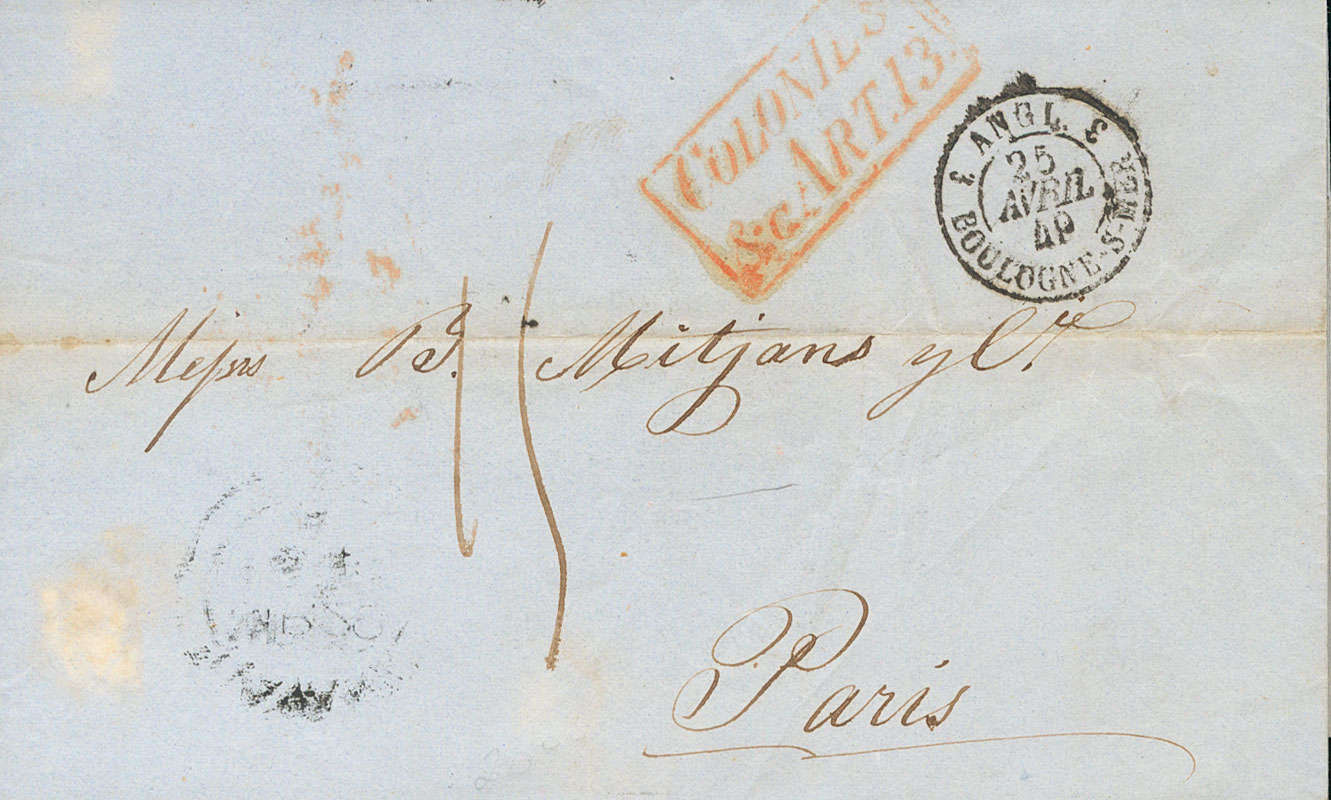 COLONIES
&c ART. 13.
3 ANGL. 3
25
AVRIL
49
BOULOGNE-S-MER
15
Messrs B. Mitjans y Cª
Paris